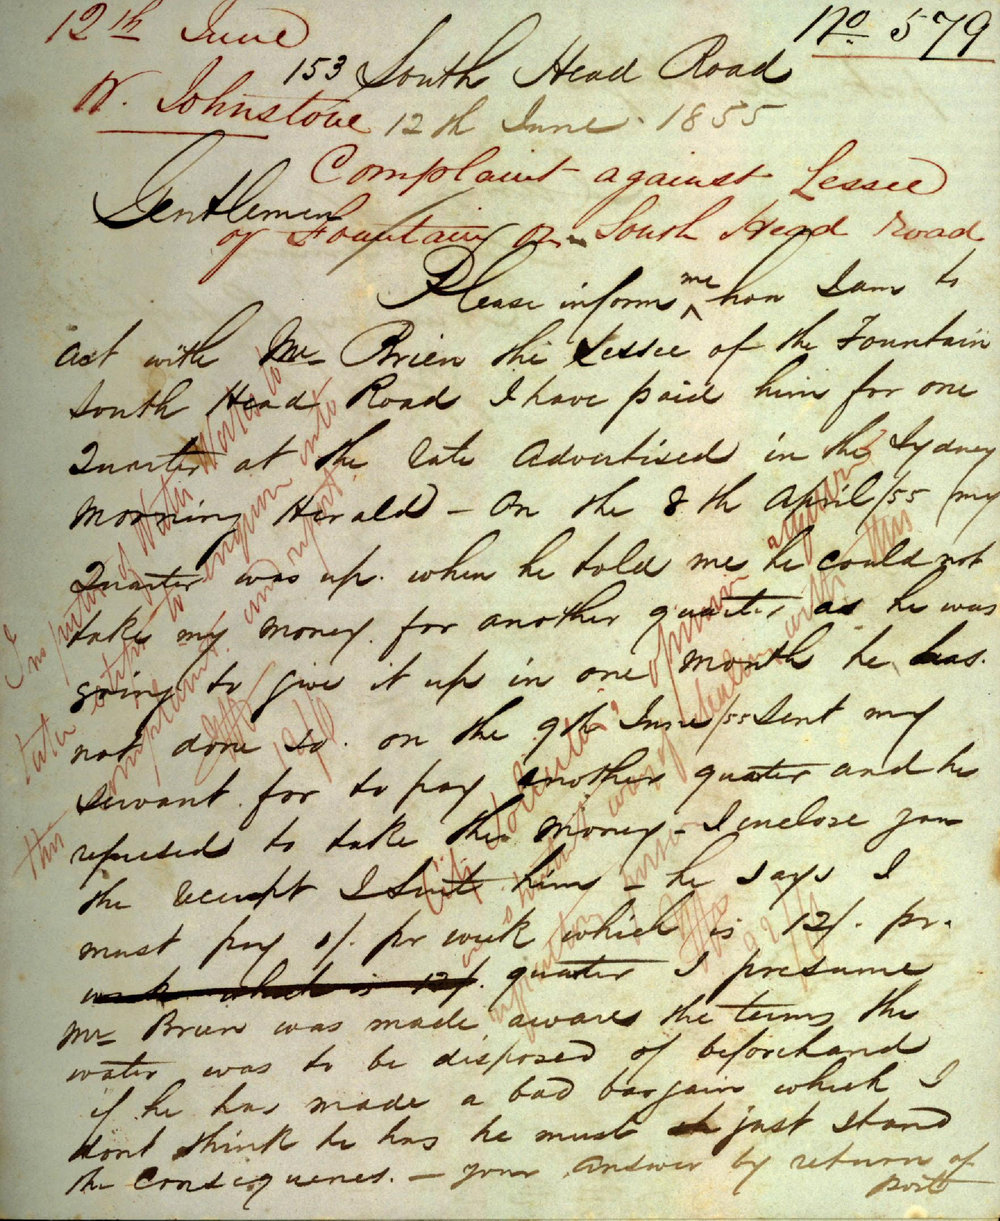 12th June
No 579
153 South Head Road
W. Johnstone
12th June 1855
Complaint against Lessee
of Fountain on South Head Road
Gentlemen
Please inform me how I am to
act with Mr Brien the Lessee of the Fountain
South Head Road I have paid him for one
Quarter at the rate advertised in the Sydney
Morning Herald - On the 8th April/55 my
Quarter was up. when he told me he could not
take my money for another quarter as he was
going to give it up in one month he has
not done so. on the 9th June/55 Sent my
servant for to pay another quater and he
refused to take the money - I enclose you
the receipt I Sent him - he says I
must pay 1/. pr week which is 12/. pr.
week which is 12/. quater I presume
Mr Brien was made aware the terms the
water was to be disposed of beforehand
if he has made a bad bargain which I
dont think he has he must just stand
the consequences. - your answer by return of
Post
Inspector of Water Works to
enquire into
this complaint and report
City Solicitor's opinion
way of dealing with this